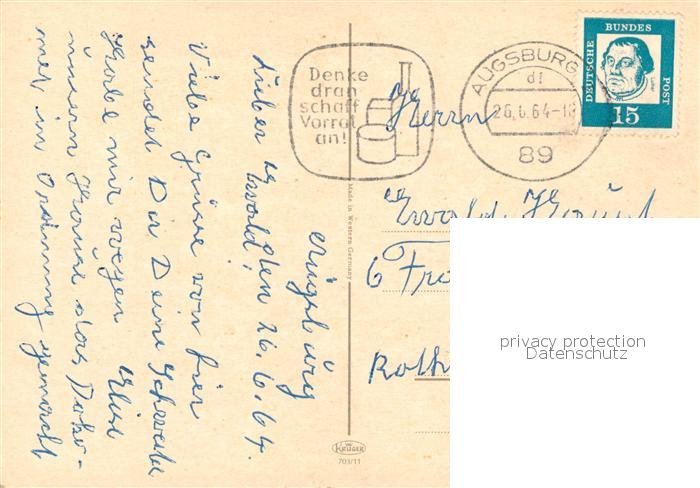 Augsburg
den 26.6.64.
Lieber Ewald!
Viele Grüsse von hier
sendet Dir Deine Schwester
Elise
Habe mir wegen
unserm Hause das Nater-
mer in Ordnung gemacht
Denke
dran
schaff
Vorrat
an!
AUGSBURG
d1
26.6.64-18
89
DEUTSCHE
BUNDES
POST
15
Herrn
Ewald
6 Fra
Roth
Made in Western Germany
KRÜGER
703/11
privacy protection
Datenschutz